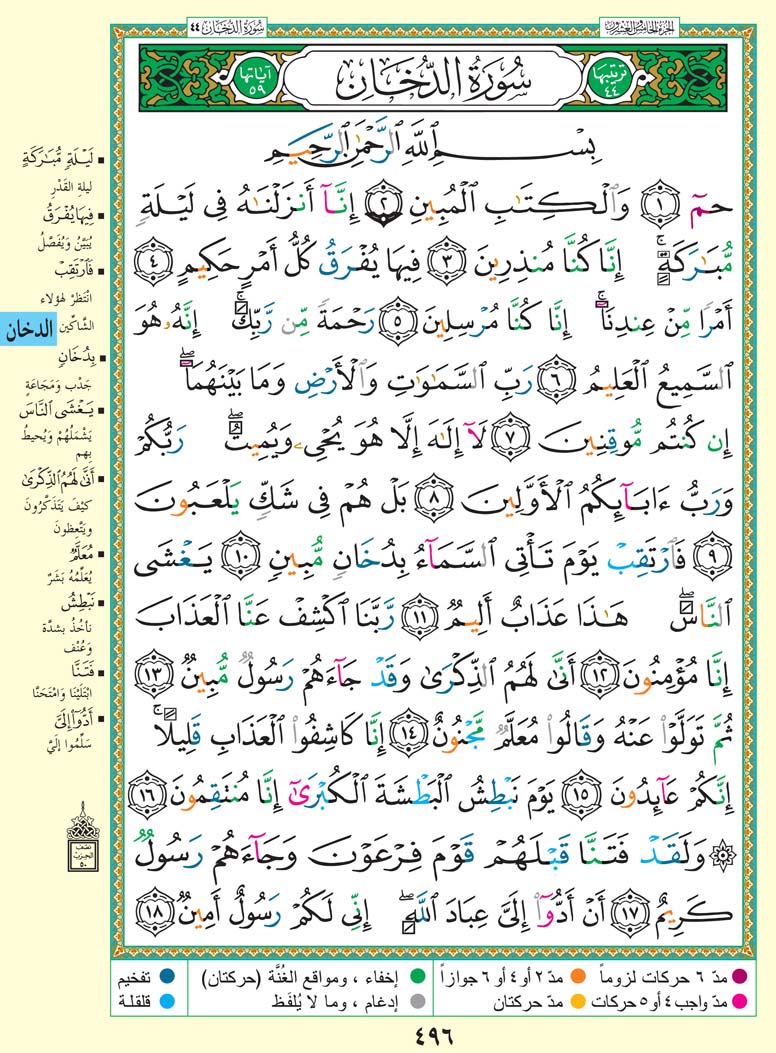 سُورَةُ الدُّخَانِ ٤٤
الجُزْءُ الخَامِسُ وَالعِشْرُونَ
ترتيبها ٤٤
سُورَةُ الدُّخَانِ
آياتها ٥٩
بِسْمِ ٱللَّهِ ٱلرَّحْمَٰنِ ٱلرَّحِيمِ
حمٓ ﴿١﴾ وَٱلْكِتَٰبِ ٱلْمُبِينِ ﴿٢﴾ إِنَّآ أَنزَلْنَٰهُ فِى لَيْلَةٍ
مُّبَٰرَكَةٍ ۚ إِنَّا كُنَّا مُنذِرِينَ ﴿٣﴾ فِيهَا يُفْرَقُ كُلُّ أَمْرٍ حَكِيمٍ ﴿٤﴾
أَمْرًا مِّنْ عِندِنَآ ۚ إِنَّا كُنَّا مُرْسِلِينَ ﴿٥﴾ رَحْمَةً مِّن رَّبِّكَ ۚ إِنَّهُۥ هُوَ
ٱلسَّمِيعُ ٱلْعَلِيمُ ﴿٦﴾ رَبِّ ٱلسَّمَٰوَٰتِ وَٱلْأَرْضِ وَمَا بَيْنَهُمَآ ۖ
إِن كُنتُم مُّوقِنِينَ ﴿٧﴾ لَآ إِلَٰهَ إِلَّا هُوَ يُحْىِۦ وَيُمِيتُ ۖ رَبُّكُمْ
وَرَبُّ ءَابَآئِكُمُ ٱلْأَوَّلِينَ ﴿٨﴾ بَلْ هُمْ فِى شَكٍّ يَلْعَبُونَ
﴿٩﴾ فَٱرْتَقِبْ يَوْمَ تَأْتِى ٱلسَّمَآءُ بِدُخَانٍ مُّبِينٍ ﴿١٠﴾ يَغْشَى
ٱلنَّاسَ ۖ هَٰذَا عَذَابٌ أَلِيمٌ ﴿١١﴾ رَّبَّنَا ٱكْشِفْ عَنَّا ٱلْعَذَابَ
إِنَّا مُؤْمِنُونَ ﴿١٢﴾ أَنَّىٰ لَهُمُ ٱلذِّكْرَىٰ وَقَدْ جَآءَهُمْ رَسُولٌ مُّبِينٌ ﴿١٣﴾
ثُمَّ تَوَلَّوْا۟ عَنْهُ وَقَالُوا۟ مُعَلَّمٌ مَّجْنُونٌ ﴿١٤﴾ إِنَّا كَاشِفُوا۟ ٱلْعَذَابِ قَلِيلًا ۚ
إِنَّكُمْ عَآئِدُونَ ﴿١٥﴾ يَوْمَ نَبْطِشُ ٱلْبَطْشَةَ ٱلْكُبْرَىٰٓ إِنَّا مُنتَقِمُونَ ﴿١٦﴾
۞ وَلَقَدْ فَتَنَّا قَبْلَهُمْ قَوْمَ فِرْعَوْنَ وَجَآءَهُمْ رَسُولٌ
كَرِيمٌ ﴿١٧﴾ أَنْ أَدُّوٓا۟ إِلَىَّ عِبَادَ ٱللَّهِ ۖ إِنِّى لَكُمْ رَسُولٌ أَمِينٌ ﴿١٨﴾
▪ لَيْلَةٍ مُّبَٰرَكَةٍ
ليلةِ القَدْرِ
▪ فِيهَا يُفْرَقُ
يُبَيَّنُ وَيُفَصَّلُ
▪ فَٱرْتَقِبْ
انْتَظِرْ لهؤلاء
الشَّاكِّين
الدخان
▪ بِدُخَانٍ
جَدْبٍ وَمَجَاعَةٍ
▪ يَغْشَى ٱلنَّاسَ
يَشْمَلُهُمْ وَيُحِيطُ
بِهِم
▪ أَنَّىٰ لَهُمُ ٱلذِّكْرَىٰ
كيْفَ يَتَذَكَّرُونَ
ويَتَّعِظونَ
▪ مُعَلَّمٌ
يُعَلِّمُهُ بَشَرٌ
▪ نَبْطِشُ
نأخُذُ بشدَّة
وَعُنْف
▪ فَتَنَّا
ابْتَلَيْنَا وَامْتَحَنَّا
▪ أَدُّوٓا۟ إِلَىَّ
سَلِّمُوا إليَّ
نصف
الحزب
٥٠
مدّ ٦ حركات لزوماً ● مدّ ٢ أو ٤ أو ٦ جوازاً ● إخفاء ، ومواقع الغُنَّة (حركتان) ● تفخيم
مدّ واجب ٤ أو ٥ حركات ● مدّ حركتان ● إدغام ، وما لا يُلفَظ ● قلقلة
٤٩٦